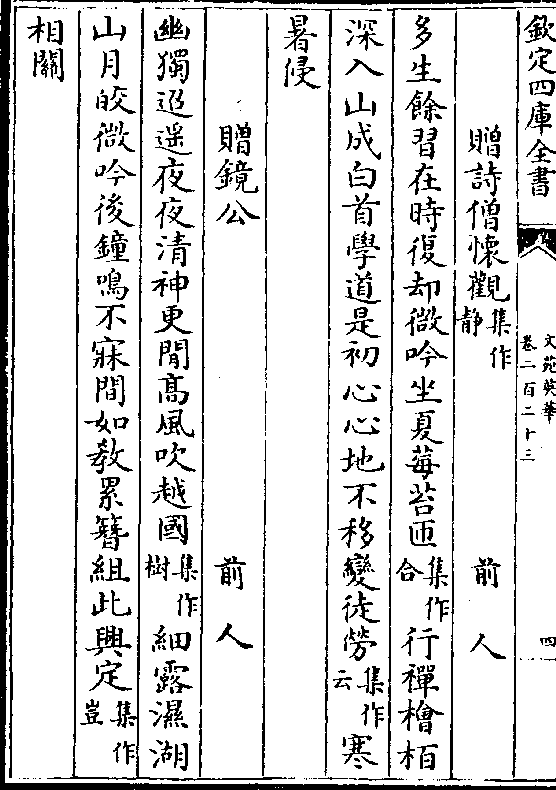 欽定四庫全書
文苑英華
卷二百二十三
四
贈詩僧懷觀集作静 前人
多生餘習在時復却微吟坐夏莓苔匝集作合行禪檜栢
深入山成白首學道是初心心地不移變徒勞集作云寒
暑侵
贈鏡公 前人
幽獨迢遥夜夜清神更閒髙風吹越國集作樹細露濕湖
山月皎微吟後鐘鳴不寐間如教累簪組此興定集作豈
相關